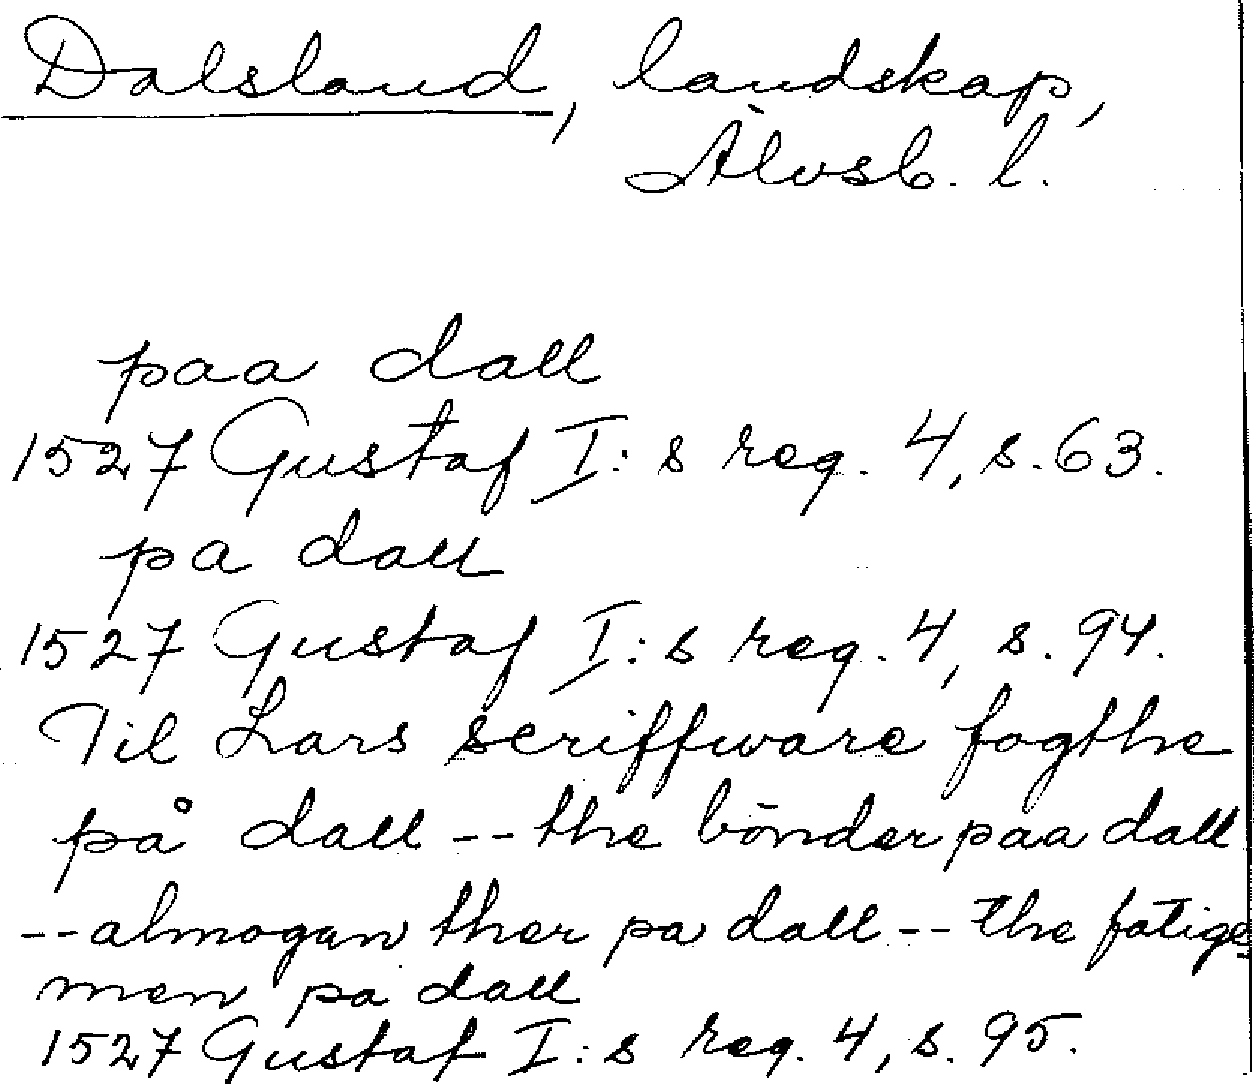 Dalsland, landskap,
Älvsb. l.
paa dall
1527 Gustaf I:s reg. 4, s. 63.
pa dall
1527 Gustaf I:s reg. 4, s. 94.
Til Lars scriffware fogthe
på dall -- the bönder paa dall
-- almogan ther pa dall -- the fatige
men pa dall
1527 Gustaf I:s reg. 4, s. 95.